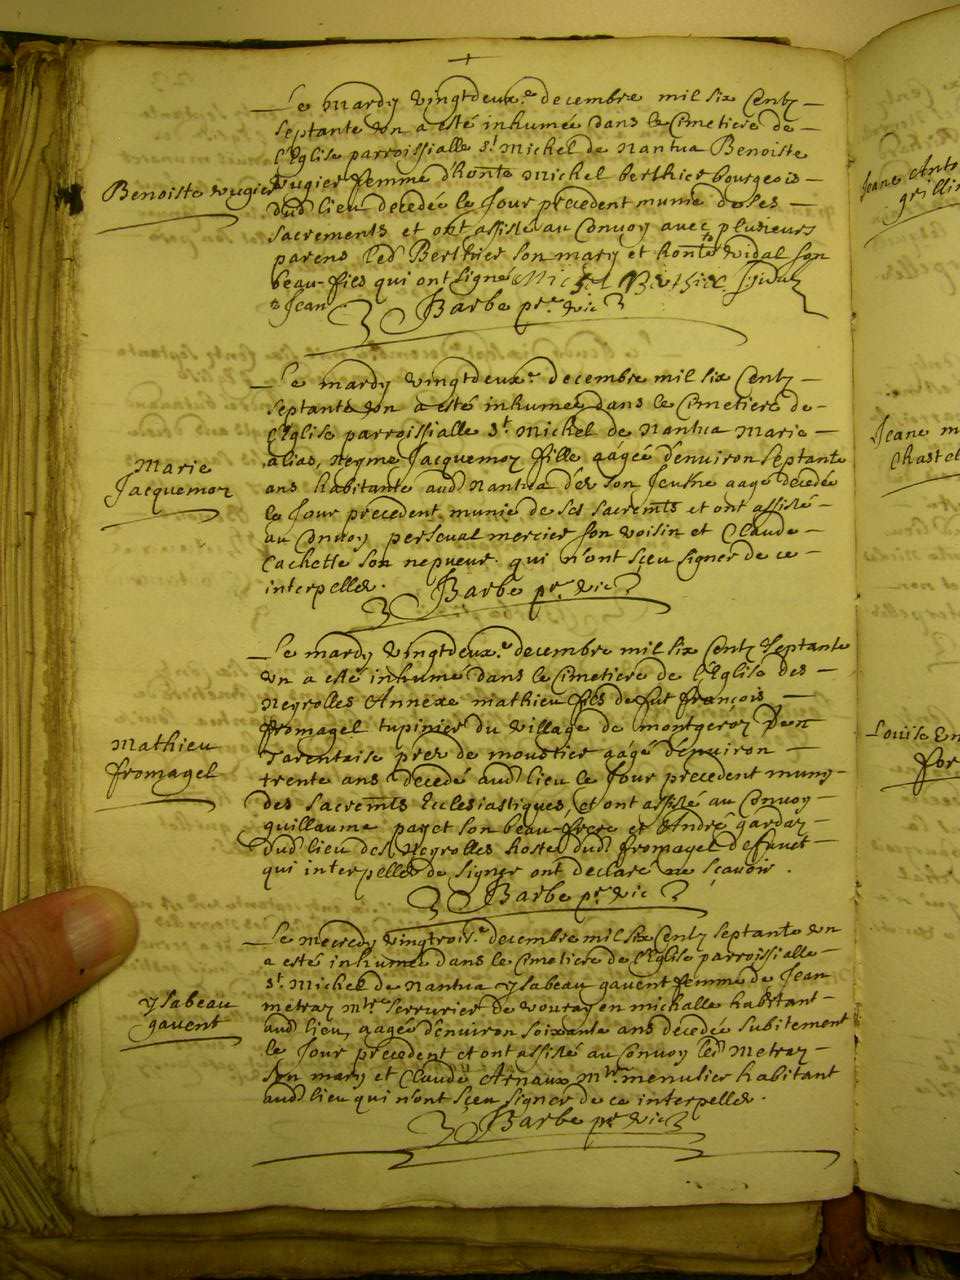 Le mardy vingtdeux.e decembre mil six Centz
septante un a esté inhumée dans le Cimetiere de
l'Eglise parroissialle st Michel de Nantua Benoiste
Benoiste rugier
rugier femme d'honte Michel berthier bourgeois
dud lieu decedée le Jour precedent munie de ses
sacrements et ont assisté au Convoy avec plusieurs
parens led Berthier son mary et honte vidal son
beau-fies qui ont signé Michel Berthier
Jean Barbe pr. vic
Le mardy vingtdeux.e decembre mil six Centz
septante un a esté inhumée dans le Cimetiere de
l'Eglise parroissialle st. Michel de Nantua Marie
Marie
Jacquemoz
alias, Neyme Jacquemoz fille aagéé d'environ septante
ans habitante aud Nantua dés son Jeune aage decedée
le Jour precedent munie de ses sacremts et ont assisté
au Convoy perseval mercier son voisin et Claude
Cachette son nepueur. qui n'ont sceu signer de ce
interpellez. Barbe pr. vic
Le mardy vingtdeux.e decembre mil six Centz septante
un a esté inhumé dans le Cimetiere de l'Eglise des
Neyrolles Annexe mathieu fils de fut françois
Mathieu
fromagel
fromagel tupinier du village de montgeroz en
Tarentaise prez de moustier aagé d'environ
trente ans decedé aud lieu le Jour precedent muny
des sacremts Ecclesiastiques, et ont assisté au Convoy
guillaume payet son beau-frere et André gardaz
dud lieu des Neyrolles hoste dud. fromagel defunct
qui interpellez de signer ont declaré ne sçavoir.
Barbe pr. vic
Le mecredy vingtrois.e decembre mil six Centz septante un
a esté inhumée dans le Cimetiere de l'Eglise parroissialle
st. Michel de Nantua ysabeau gauent femme de Jean
ysabeau
gauent
metraz mtre serrurier de vouray en michalle habitant
aud lieu, aagée d'environ soixante ans decedée subitement
le Jour precedent et ont assisté au Convoy led Metraz
son mary et Claude Arnaux mtre menusier habitant
aud lieu qui n'ont sceu signer de ce interpellez.
Barbe pr vic
Jeane
grilli
Jeane m
Chastel
Louise
for